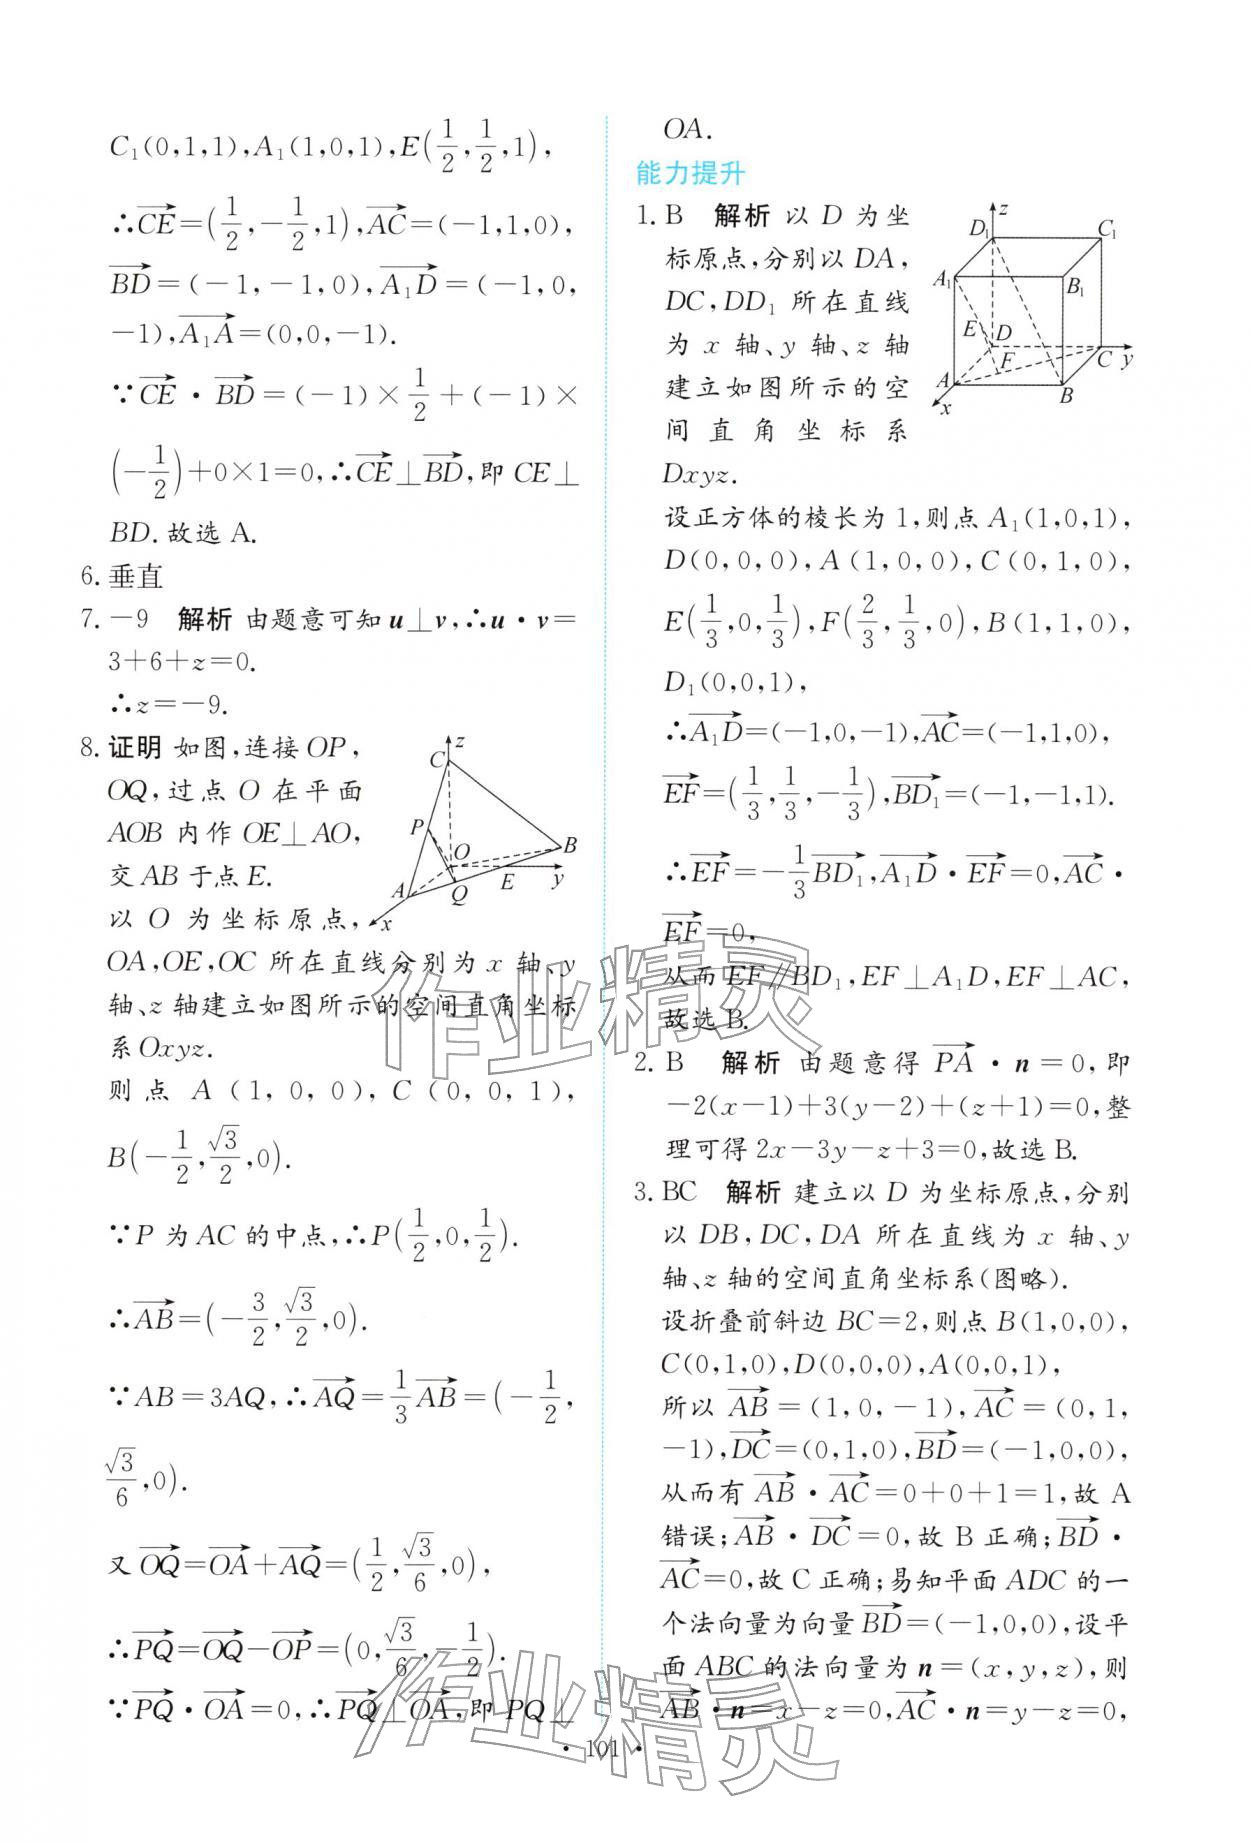 C₁(0,1,1),A₁(1,0,1),E(1/2,1/2,1),
∴CE→=(1/2,-1/2,1),AC→=(-1,1,0),
BD→=(-1,-1,0),A₁D→=(-1,0,
-1),A₁A→=(0,0,-1).
∵CE→·BD→=(-1)×1/2+(-1)×
(-1/2)+0×1=0,∴CE→⊥BD→,即 CE⊥
BD.故选 A.
6.垂直
7.-9 解析 由题意可知 u⊥v,∴u·v=
3+6+z=0.
∴z=-9.
8.证明 如图,连接 OP,
OQ,过点 O 在平面
AOB 内作 OE⊥AO,
交 AB 于点 E.
以 O 为坐标原点,
OA,OE,OC 所在直线分别为 x 轴、y
轴、z 轴建立如图所示的空间直角坐标
系Oxyz.
则点 A(1,0,0),C(0,0,1),
B(-1/2,√3/2,0).
∵P 为 AC 的中点,∴P(1/2,0,1/2).
∴AB→=(-3/2,√3/2,0).
∵AB=3AQ,∴AQ→=1/3AB→=(-1/2,
√3/6,0).
又OQ→=OA→+AQ→=(1/2,√3/6,0),
∴PQ→=OQ→-OP→=(0,√3/6,-1/2).
∵PQ→·OA→=0,∴PQ→⊥OA→,即 PQ⊥
z
C
P
B
O
A
Q
E
y
x
OA.
能力提升
1.B 解析 以 D 为坐
标原点,分别以 DA,
DC,DD₁ 所在直线
为 x 轴、y 轴、z 轴
建立如图所示的空
间直角坐标系
Dxyz.
z
D₁
C₁
A₁
B₁
E
D
F
C
y
A
B
x
设正方体的棱长为 1,则点 A₁(1,0,1),
D(0,0,0),A(1,0,0),C(0,1,0),
E(1/3,0,1/3),F(2/3,1/3,0),B(1,1,0),
D₁(0,0,1),
∴A₁D→=(-1,0,-1),AC→=(-1,1,0),
EF→=(1/3,1/3,-1/3),BD₁→=(-1,-1,1).
∴EF→=-1/3BD₁→,A₁D→·EF→=0,AC→·
EF→=0,
从而 EF∥BD₁,EF⊥A₁D,EF⊥AC,
故选 B.
2.B 解析 由题意得 PA→·n=0,即
-2(x-1)+3(y-2)+(z+1)=0,整
理可得 2x-3y-z+3=0,故选 B.
3.BC 解析 建立以 D 为坐标原点,分别
以 DB,DC,DA 所在直线为 x 轴、y
轴、z 轴的空间直角坐标系(图略).
设折叠前斜边 BC=2,则点 B(1,0,0),
C(0,1,0),D(0,0,0),A(0,0,1),
所以 AB→=(1,0,-1),AC→=(0,1,
-1),DC→=(0,1,0),BD→=(-1,0,0),
从而有 AB→·AC→=0+0+1=1,故 A
错误;AB→·DC→=0,故 B 正确;BD→·
AC→=0,故 C 正确;易知平面 ADC 的一
个法向量为向量BD→=(-1,0,0),设平
面 ABC 的法向量为 n=(x,y,z),则
AB→·n=x-z=0,AC→·n=y-z=0,
·101·
作业精灵
作业精灵